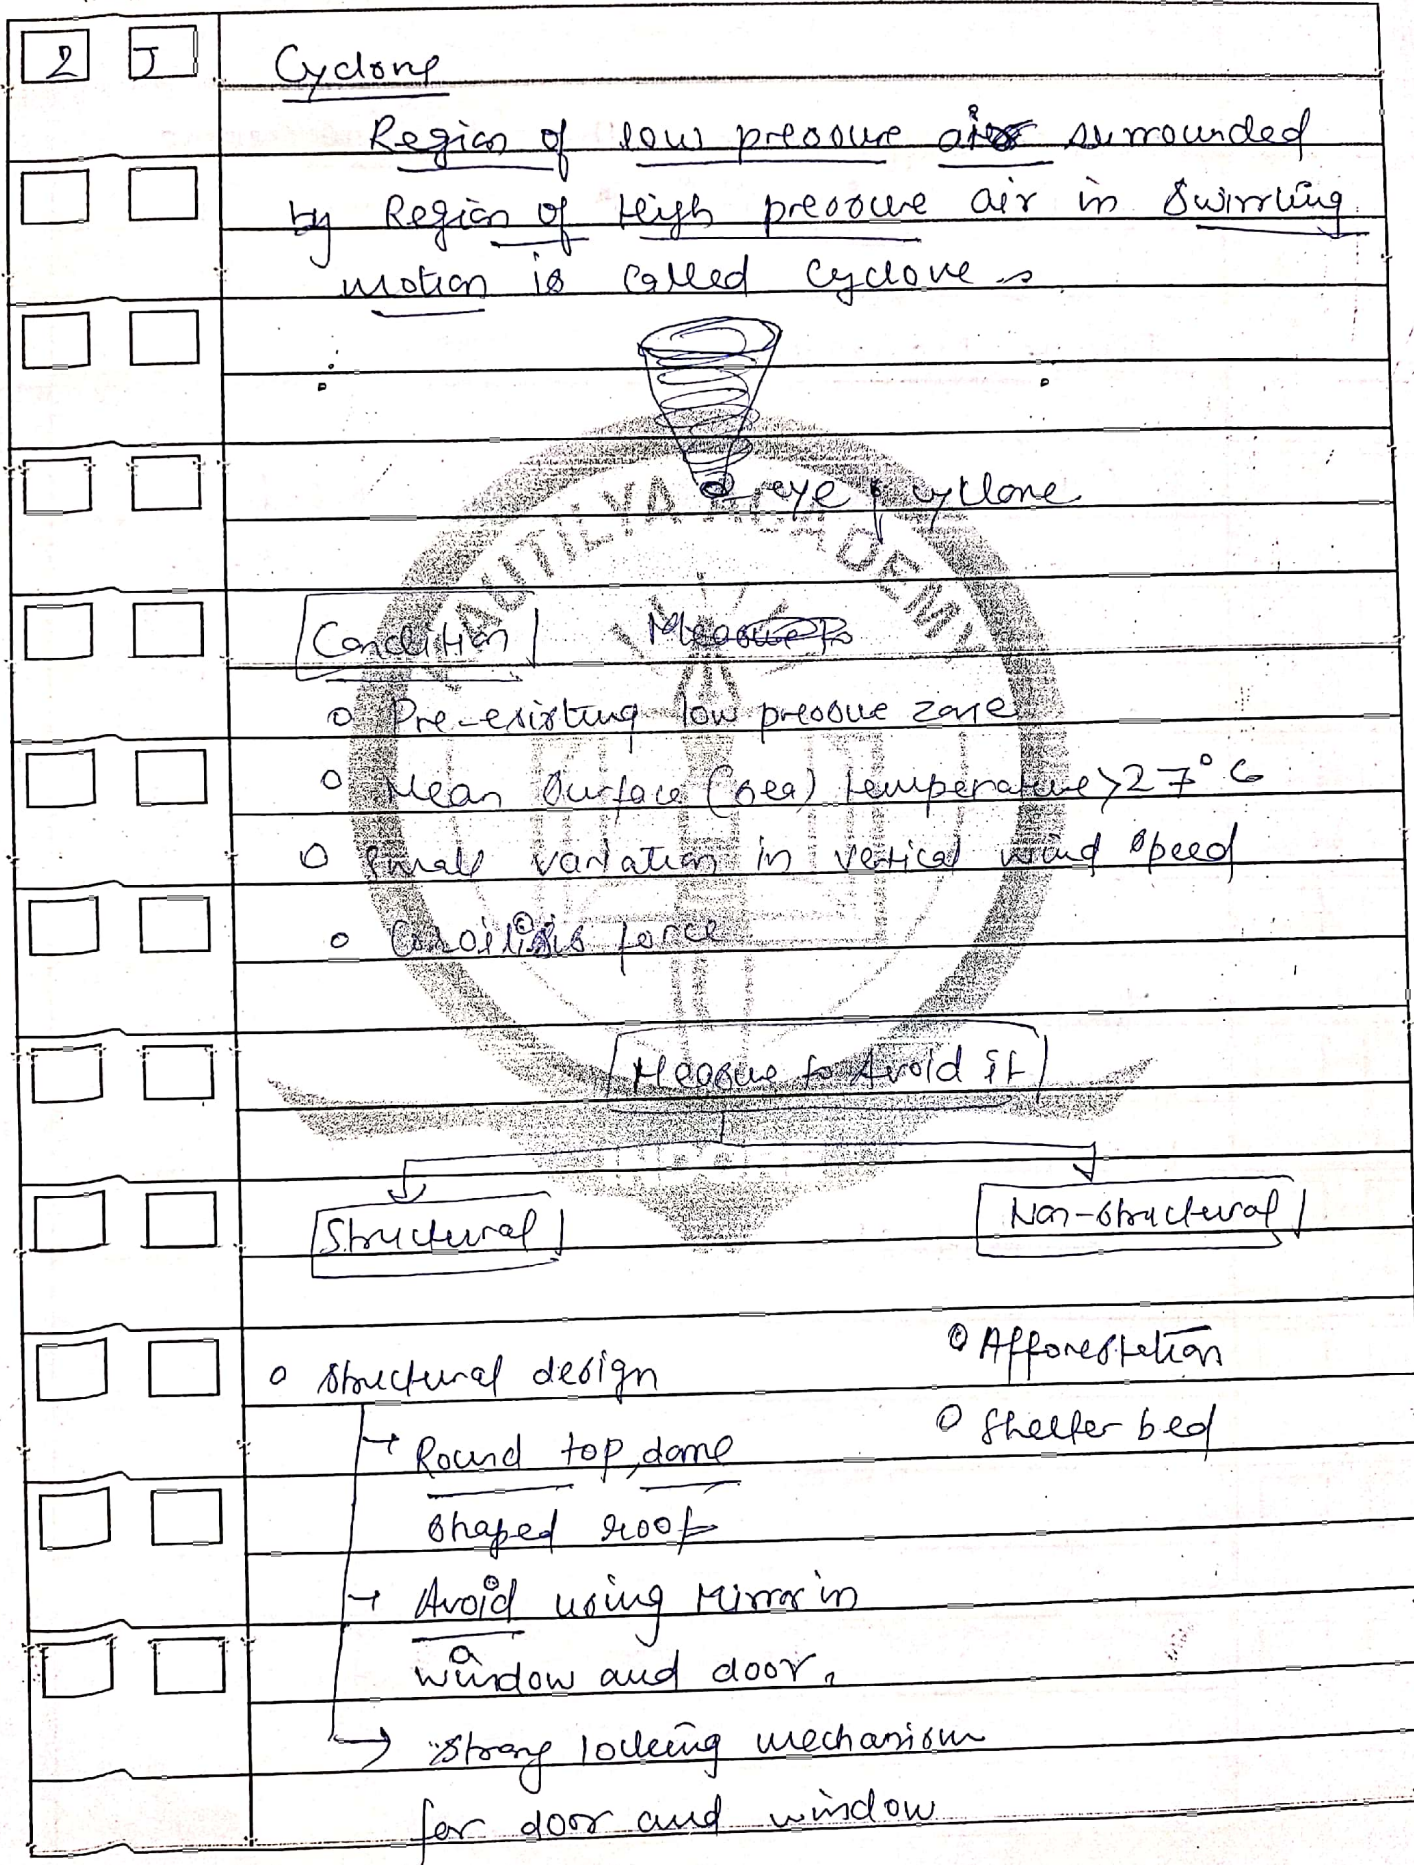 2 J
Cyclone
Region of low pressure air surrounded
by Region of High pressure air in Swirrling
motion is called cyclone
eye of cyclone
KAUTILYA ACADEMY
Condition Measure to
Pre-existing low pressue zone
Mean Surface (sea) temperature > 27°C
Small variation in vertical wind speed
force
Measue to Avoid it
Structural Non-structural
Afforestation
Structural design
Shelter bed
→ Round top, dome
shaped roof
→ Avoid using Mirror in
window and door.
→ Strong locking mechanism
for door and window